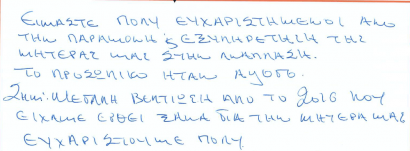 ΕΙΜΑΣΤΕ ΠΟΛΥ ΕΥΧΑΡΙΣΤΗΜΕΝΟΙ ΑΠΟ
ΤΗΝ ΠΑΡΑΜΟΝΗ & ΕΞΥΠΗΡΕΤΗΣΗ ΤΗΣ
ΜΗΤΕΡΑΣ ΜΑΣ ΣΤΗΝ ΑΝΑΠΛΑΣΗ.
ΤΟ ΠΡΟΣΩΠΙΚΟ ΗΤΑΝ ΑΨΟΓΟ.
ΣΗΜ: ΜΕΓΑΛΗ ΒΕΛΤΙΩΣΗ ΑΠΟ ΤΟ 2016 ΠΟΥ
ΕΙΧΑΜΕ ΕΡΘΕΙ ΞΑΝΑ ΓΙΑ ΤΗΝ ΜΗΤΕΡΑ ΜΑΣ
ΕΥΧΑΡΙΣΤΟΥΜΕ ΠΟΛΥ